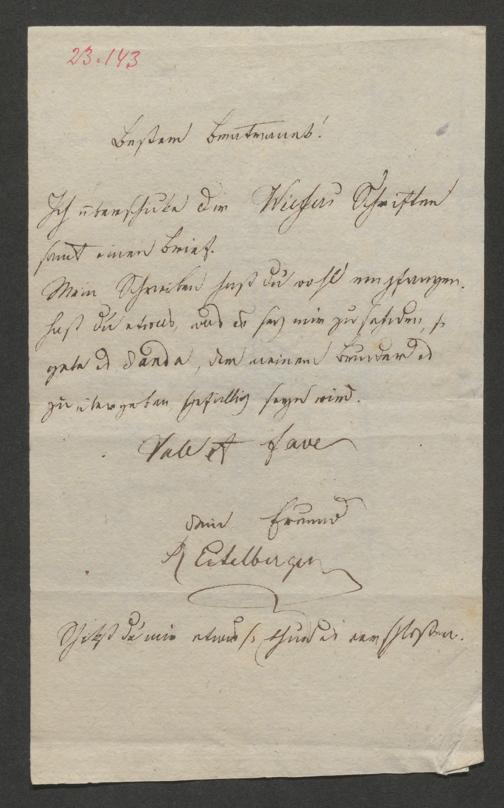 23.143
Bester Bentranet!
Ich überschicke dir Wiesers Schriften
samt einen Brief.
Mein Schreiben hast du wohl empfangen.
Hast du etwas, was du mir zu senden, so
gebe es Sanda, der meinem Bruder es
zu übergeben gefällig seyn wird.
Vale et fave
dein Freund
R Eitelberger
Schikst du mir etwas so thue es verschlossen.